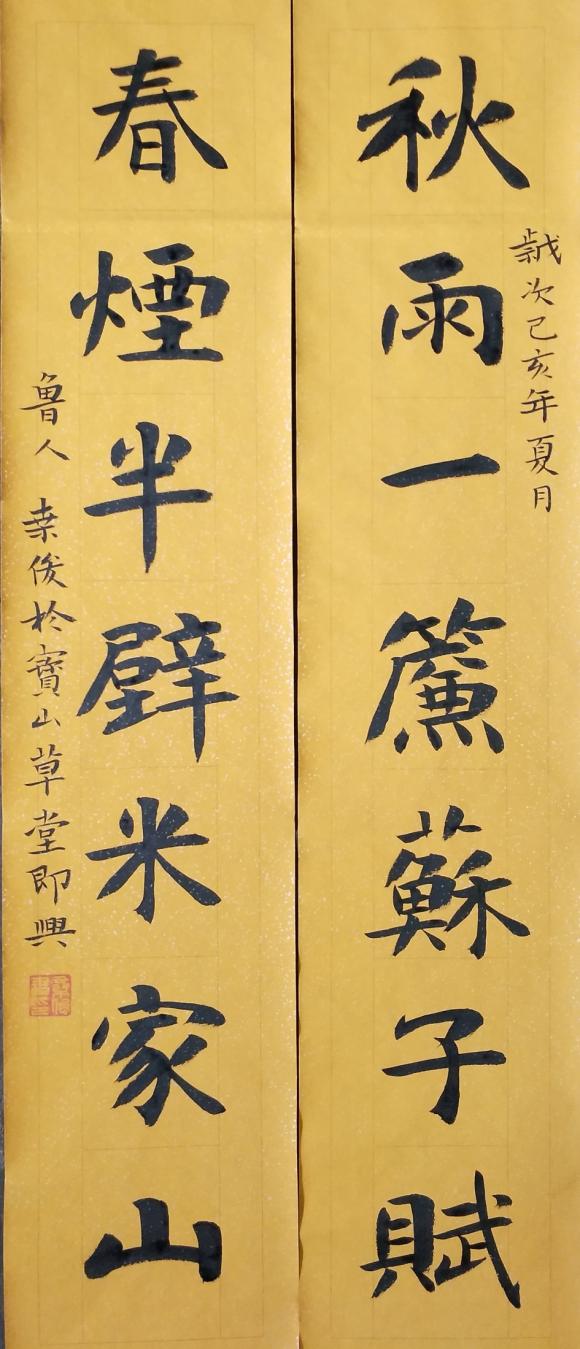 歲次己亥年夏月
秋雨一簾蘇子賦
春煙半壁米家山
魯人 桒俊於寶山草堂即興